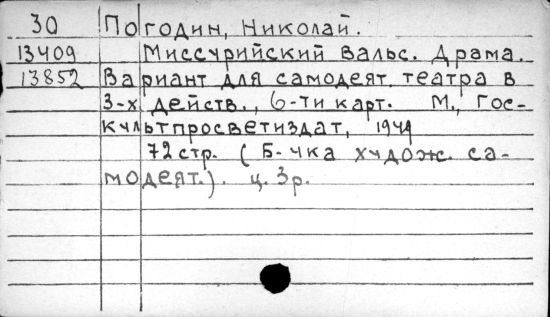 30 Погодин, Николай.
13409 Миссурийский вальс. Драма.
13852 Вариант для самодеят. театра в
3-х действ., 6-ти карт. М., Гос-
культпросветиздат, 1949
72 стр. (Б-чка худож. са-
модеят.). ц. 3р.